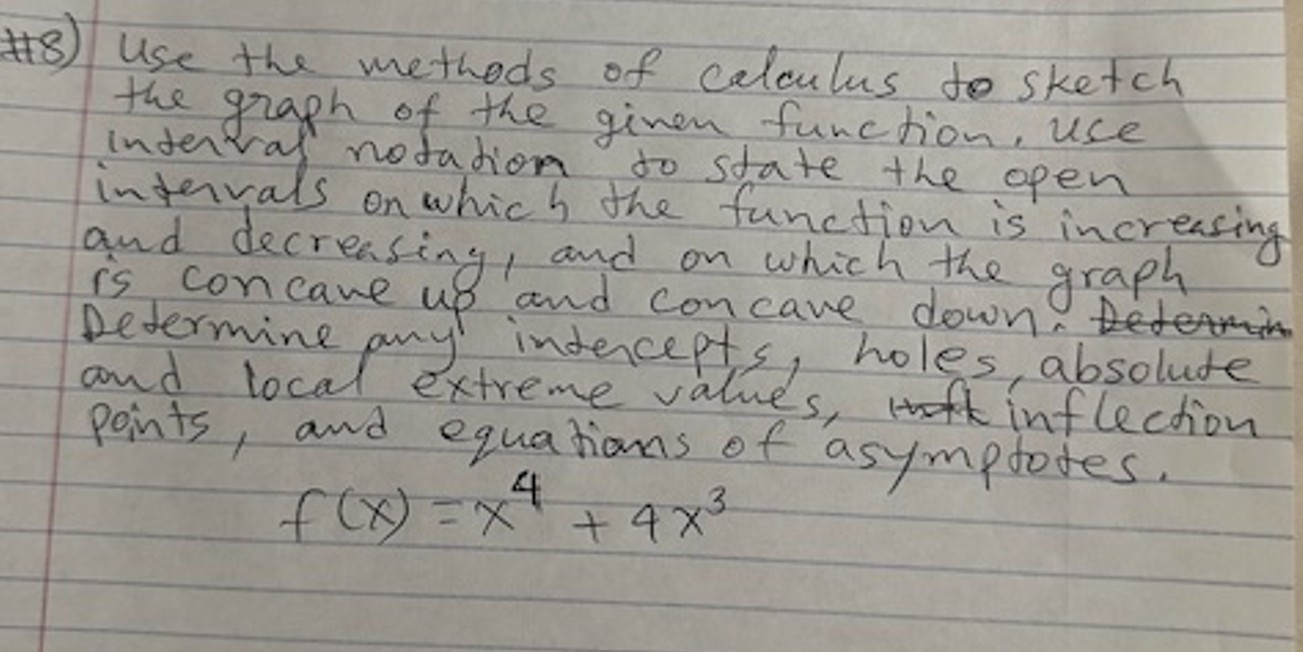 #8) Use the methods of calculus to sketch
the graph of the given function. Use
interval notation to state the open
intervals on which the function is increasing
and decreasing, and on which the graph
is concave up and concave down. Determin
Determine any intercepts, holes, absolute
and local extreme values, inflection
points, and equations of asymptotes.
f(x) = x⁴ + 4x³